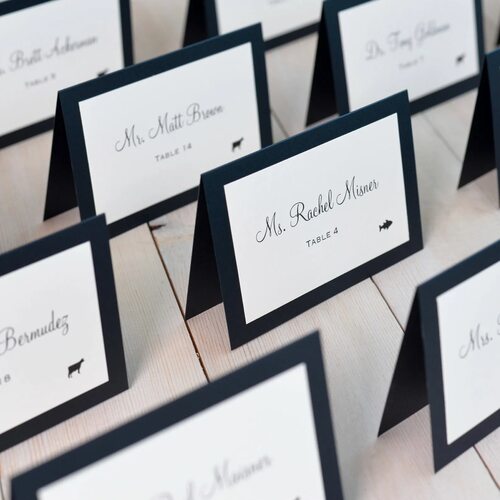 Brett Ackerman
TABLE 5
Dr. Tony Goldman
TABLE 7
Mr. Matt Brown
TABLE 14
Ms. Rachel Misner
TABLE 4
Bermudez
Mrs.
Misner